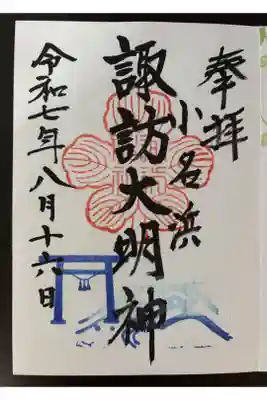 奉拝
小名浜
諏訪大明神
令和七年八月十六日